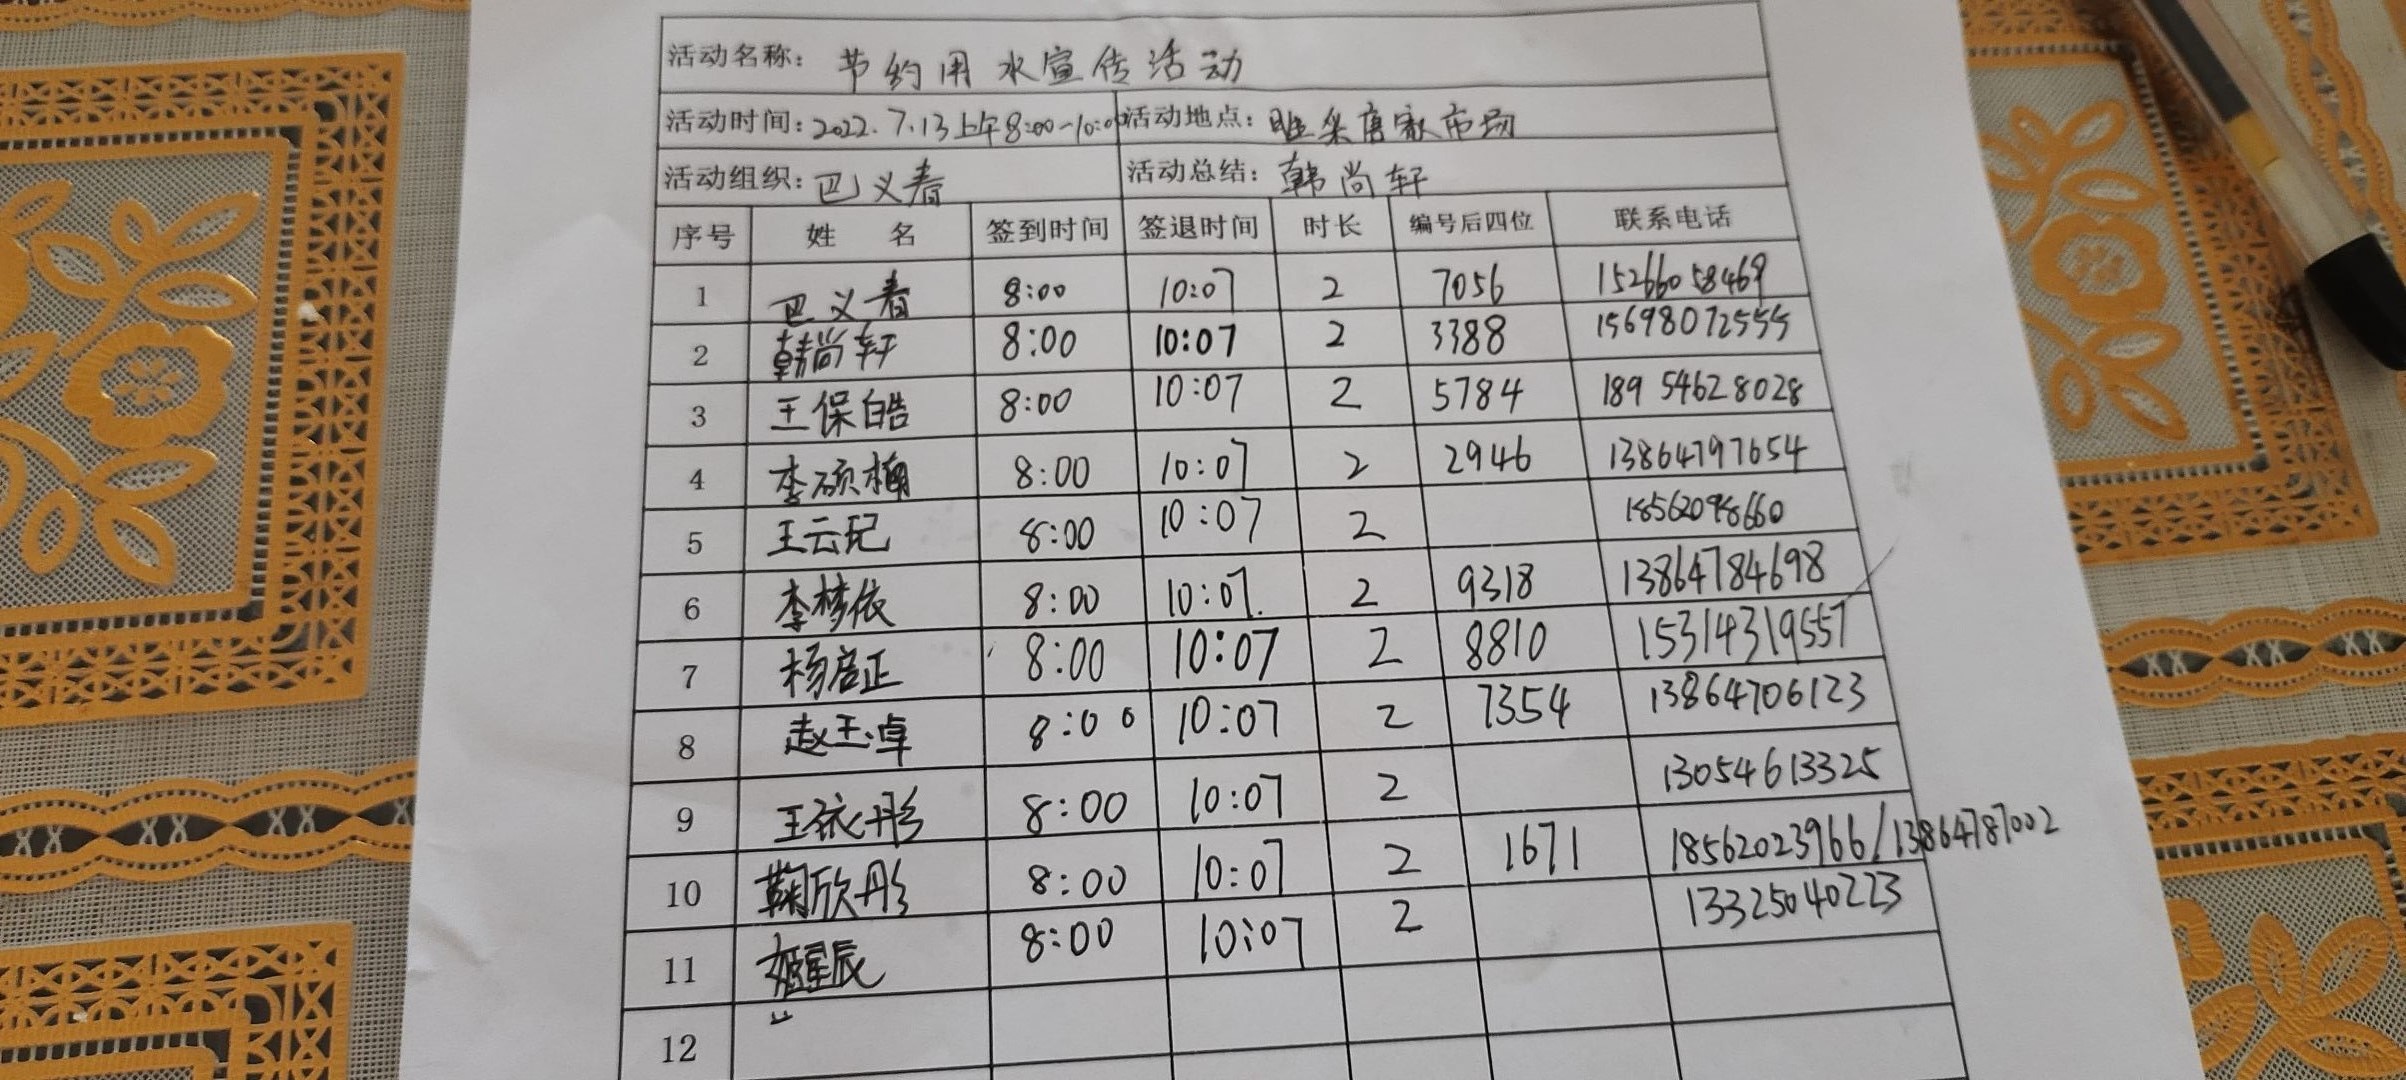 活动名称：节约用水宣传活动
活动时间：2022.7.13上午8:00-10:00 活动地点：唐家市场
活动组织：巴义春 活动总结：韩尚轩
序号 姓 名 签到时间 签退时间 时长 编号后四位 联系电话
1 巴义春 8:00 10:07 2 7056 15266058469
2 韩尚轩 8:00 10:07 2 3388 15698072555
3 王保皓 8:00 10:07 2 5784 18954628028
4 李硕楠 8:00 10:07 2 2946 13864797654
5 王云 8:00 10:07 2 18562098660
6 李梦依 8:00 10:07 2 9318 13864784698
7 杨启正 8:00 10:07 2 8810 15314319557
8 赵玉卓 8:00 10:07 2 7354 13864706123
9 王依彤 8:00 10:07 2 13054613325
10 鞠欣彤 8:00 10:07 2 1671 18562023966/13864787002
11 姬星辰 8:00 10:07 2 13325040223
12